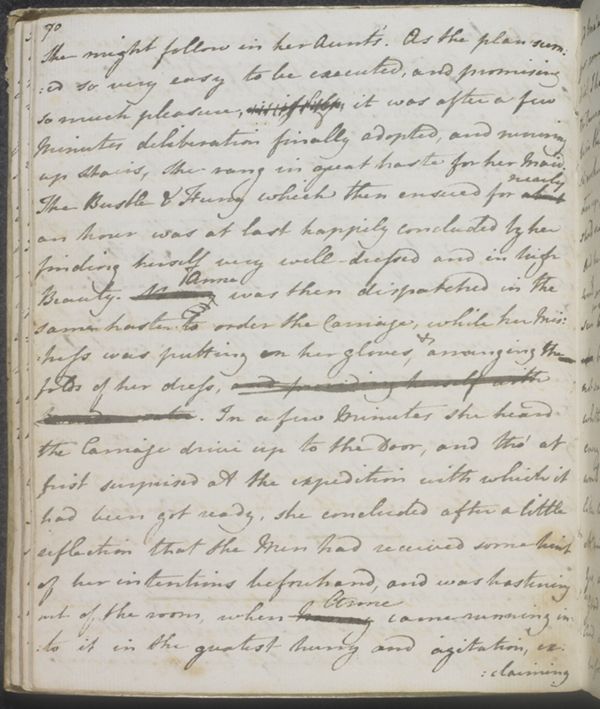 70
She might follow in her Aunt's. As the plan seem:
:ed so very easy to be executed, and promising
so much pleasure, it was after a few
Minutes deliberation finally adopted, and running
up stairs, she rang in great haste for her Maid.
nearly
The Bustle & Hurry which then ensued for about
an hour was at last happily concluded by her
finding herself very well-dressed and in high
Anna
Beauty. was then dispatched in the
same haste to order the Carriage, while her Mis:
:tress was putting on her gloves, & arranging the
folds of her dress, and providing herself with
. In a few Minutes she heard
the Carriage drive up to the Door, and tho' at
first surprised at the expedition with which it
had been got ready, she concluded after a little
reflection that the Men had received some hint
of her intentions beforehand, and was hastening
Anne
out of the room, when came running in:
:to it in the greatest hurry and agitation, ex:
:claiming